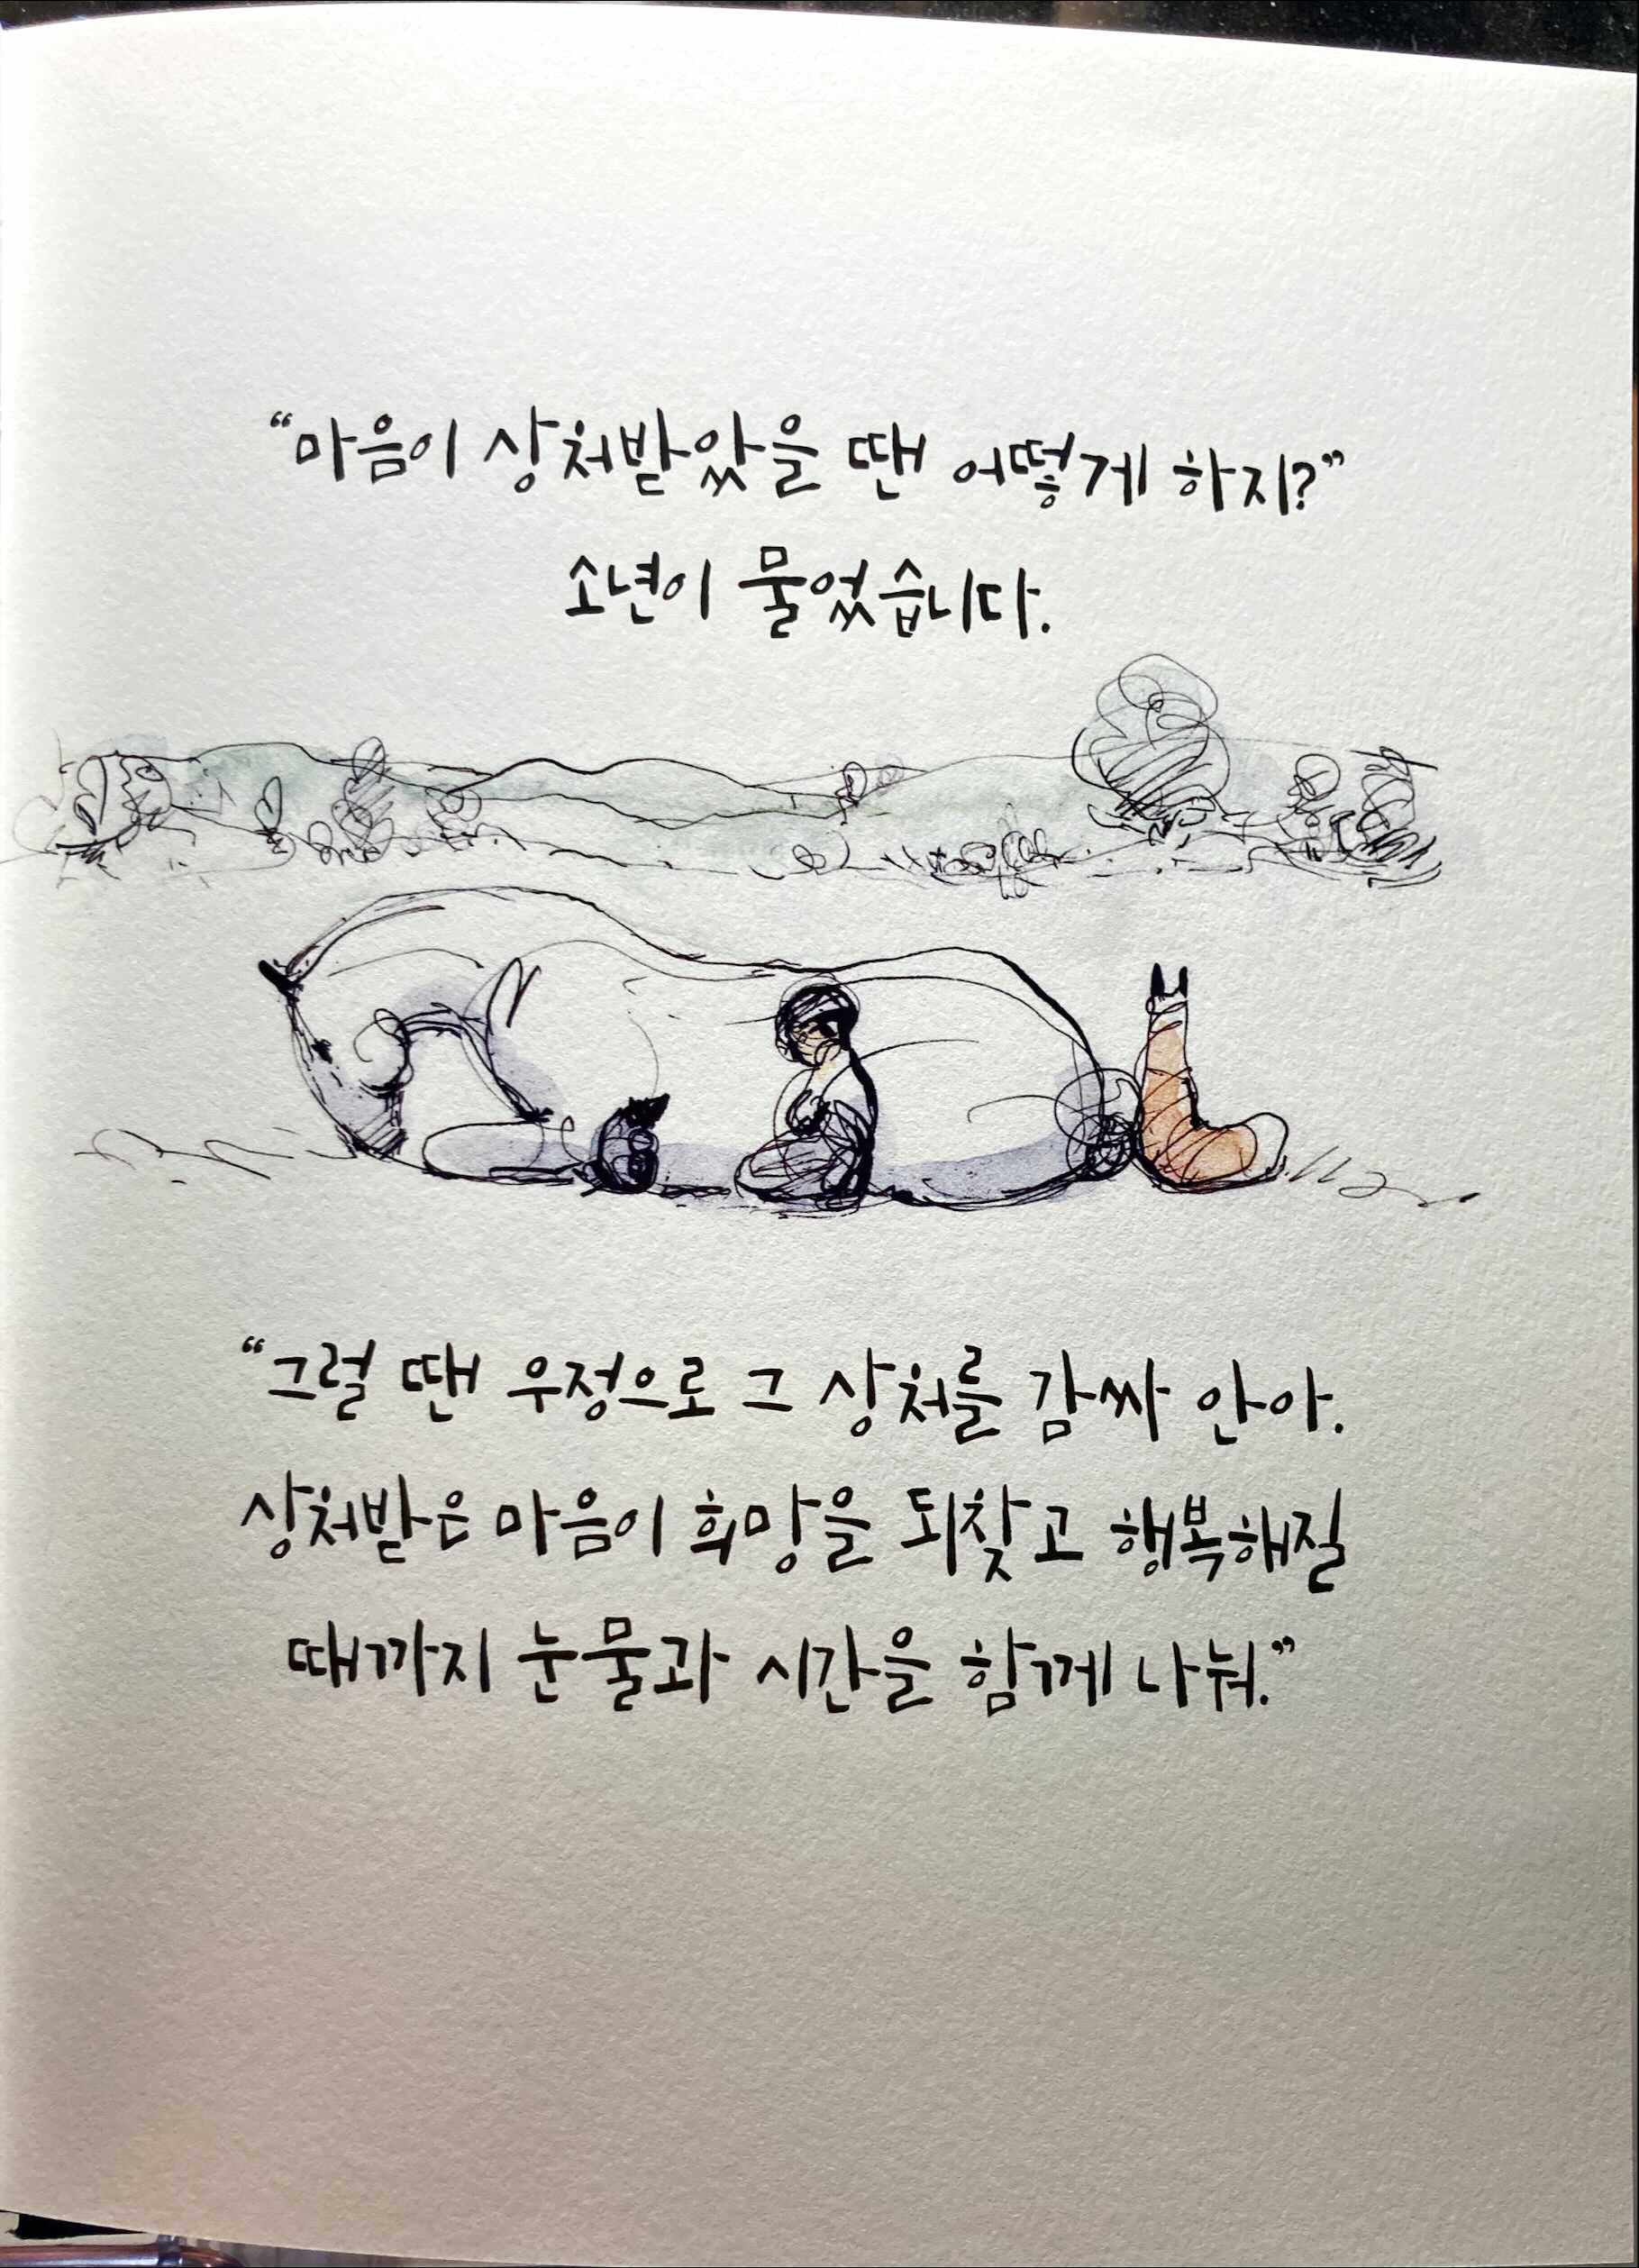 “마음이 상처받았을 땐 어떻게 하지?”
소년이 물었습니다.
“그럴 땐 우정으로 그 상처를 감싸 안아.
상처받은 마음이 희망을 되찾고 행복해질
때까지 눈물과 시간을 함께 나눠.”